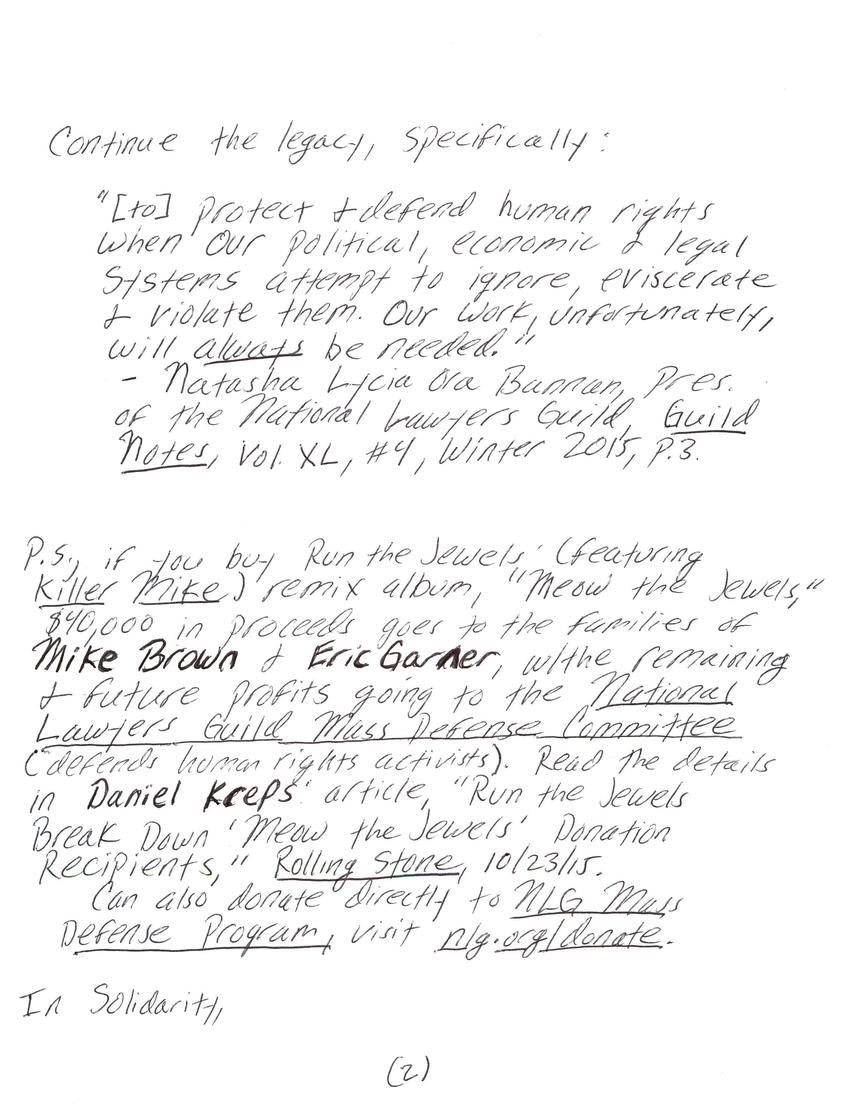 Continue the legacy, specifically:
"[to] protect & defend human rights
when our political, economic & legal
systems attempt to ignore, eviscerate
& violate them. Our work, unfortunately,
will always be needed."
- Natasha Lycia Ora Bannan, Pres.
of the National Lawyers Guild, Guild
Notes, Vol. XL, #4, Winter 2015, p.3.
P.S., if you buy Run the Jewels' (featuring
Killer Mike) remix album, "Meow the Jewels,"
$40,000 in proceeds goes to the families of
Mike Brown & Eric Garner, w/the remaining
& future profits going to the National
Lawyers Guild Mass Defense Committee
(defends human rights activists). Read the details
in Daniel Kreps' article, "Run the Jewels
Break Down 'Meow the Jewels' Donation
Recipients," Rolling Stone, 10/23/15.
Can also donate directly to NLG Mass
Defense Program, visit nlg.org/donate.
In Solidarity,
(2)